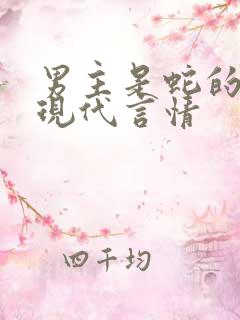 男主是蛇的
現代言情
四千均